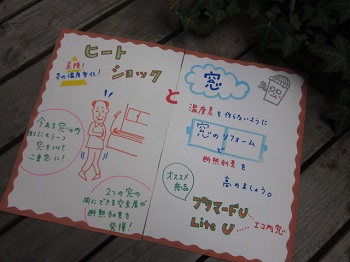 ヒート
ショック
危険!
冬の温度変化!
今ある窓の内
側にもう一つ
窓をつけて
ご意見に!
2つの窓の
間にできる空気層が
断熱効果を
発揮!
と
窓
温度差を作らないように
窓のリフォーム
で
断熱効果を
高めましょう。
オススメ
商品
プラマードU
Lite U
エコ内窓